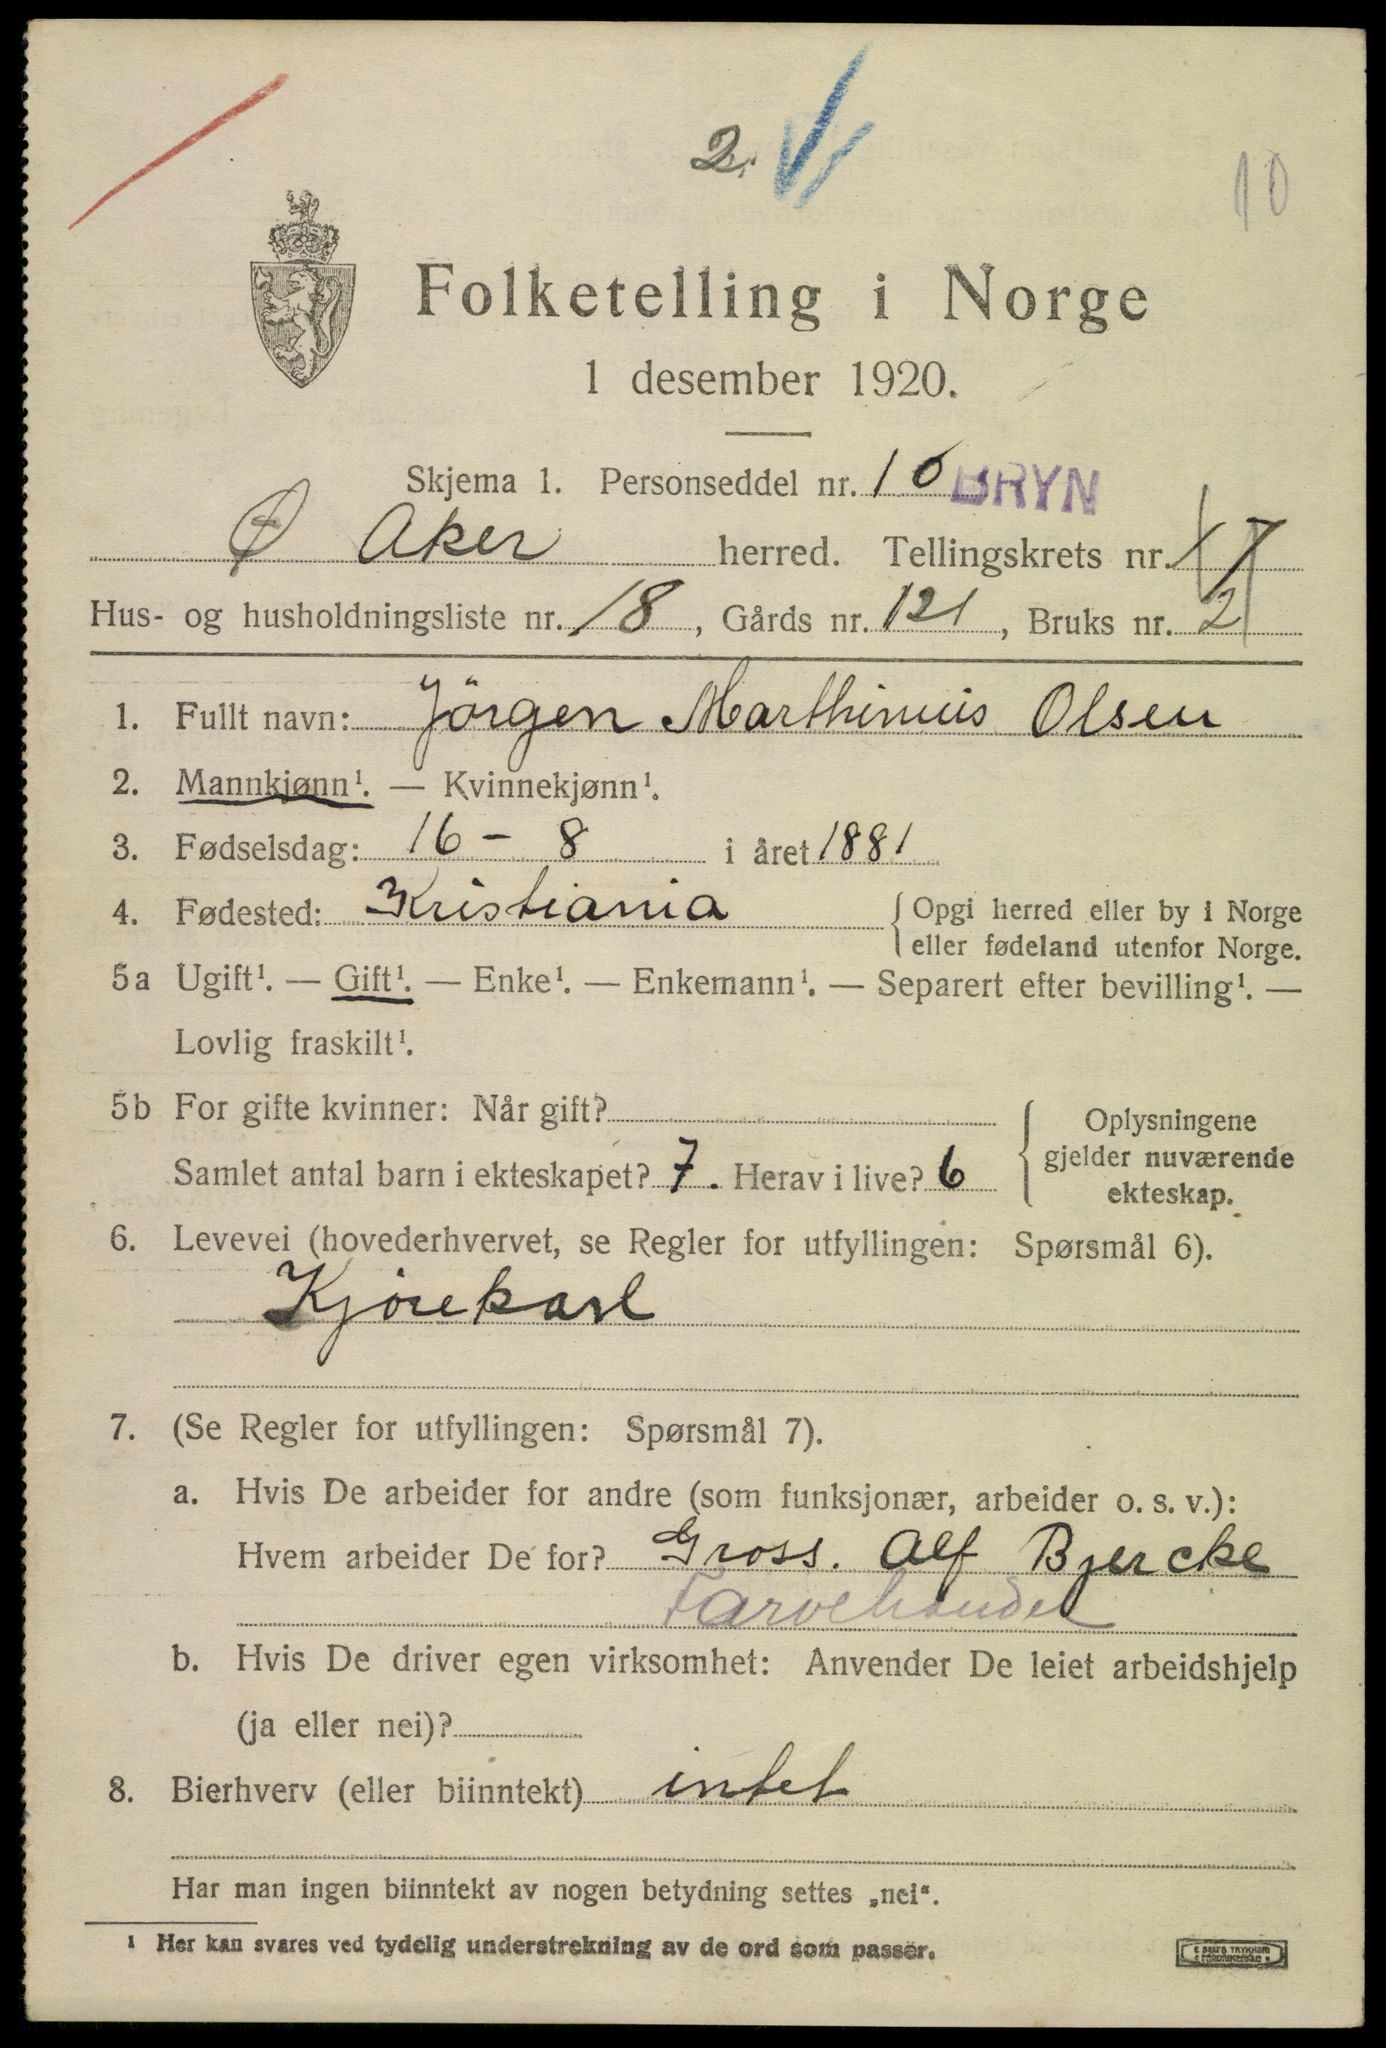 2.
10
Folketelling i Norge
1 desember 1920.
Skjema 1. Personseddel nr. 10 BRYN
Ø Aker herred. Tellingskrets nr.
Hus- og husholdningsliste nr. 18, Gårds nr. 121, Bruks nr. 2
1. Fullt navn: Jörgen Marthinius Olsen
2. Mannkjønn¹. — Kvinnekjønn¹.
3. Fødselsdag: 16 – 8 i året 1881
4. Fødested: Kristiania { Opgi herred eller by i Norge
eller fødeland utenfor Norge.
5a Ugift¹. — Gift¹. — Enke¹. — Enkemann¹. — Separert efter bevilling¹. —
Lovlig fraskilt¹.
5b For gifte kvinner: Når gift? { Oplysningene
gjelder nuværende
ekteskap.
Samlet antal barn i ekteskapet? 7. Herav i live? 6
6. Levevei (hovederhvervet, se Regler for utfyllingen: Spørsmål 6).
Kjörekarl
7. (Se Regler for utfyllingen: Spørsmål 7).
a. Hvis De arbeider for andre (som funksjonær, arbeider o. s. v.):
Hvem arbeider De for? Gross. Alf Bjercke
Farvehandel
b. Hvis De driver egen virksomhet: Anvender De leiet arbeidshjelp
(ja eller nei)?
8. Bierhverv (eller biinntekt) intet
Har man ingen biinntekt av nogen betydning settes „nei“.
¹ Her kan svares ved tydelig understrekning av de ord som passer.